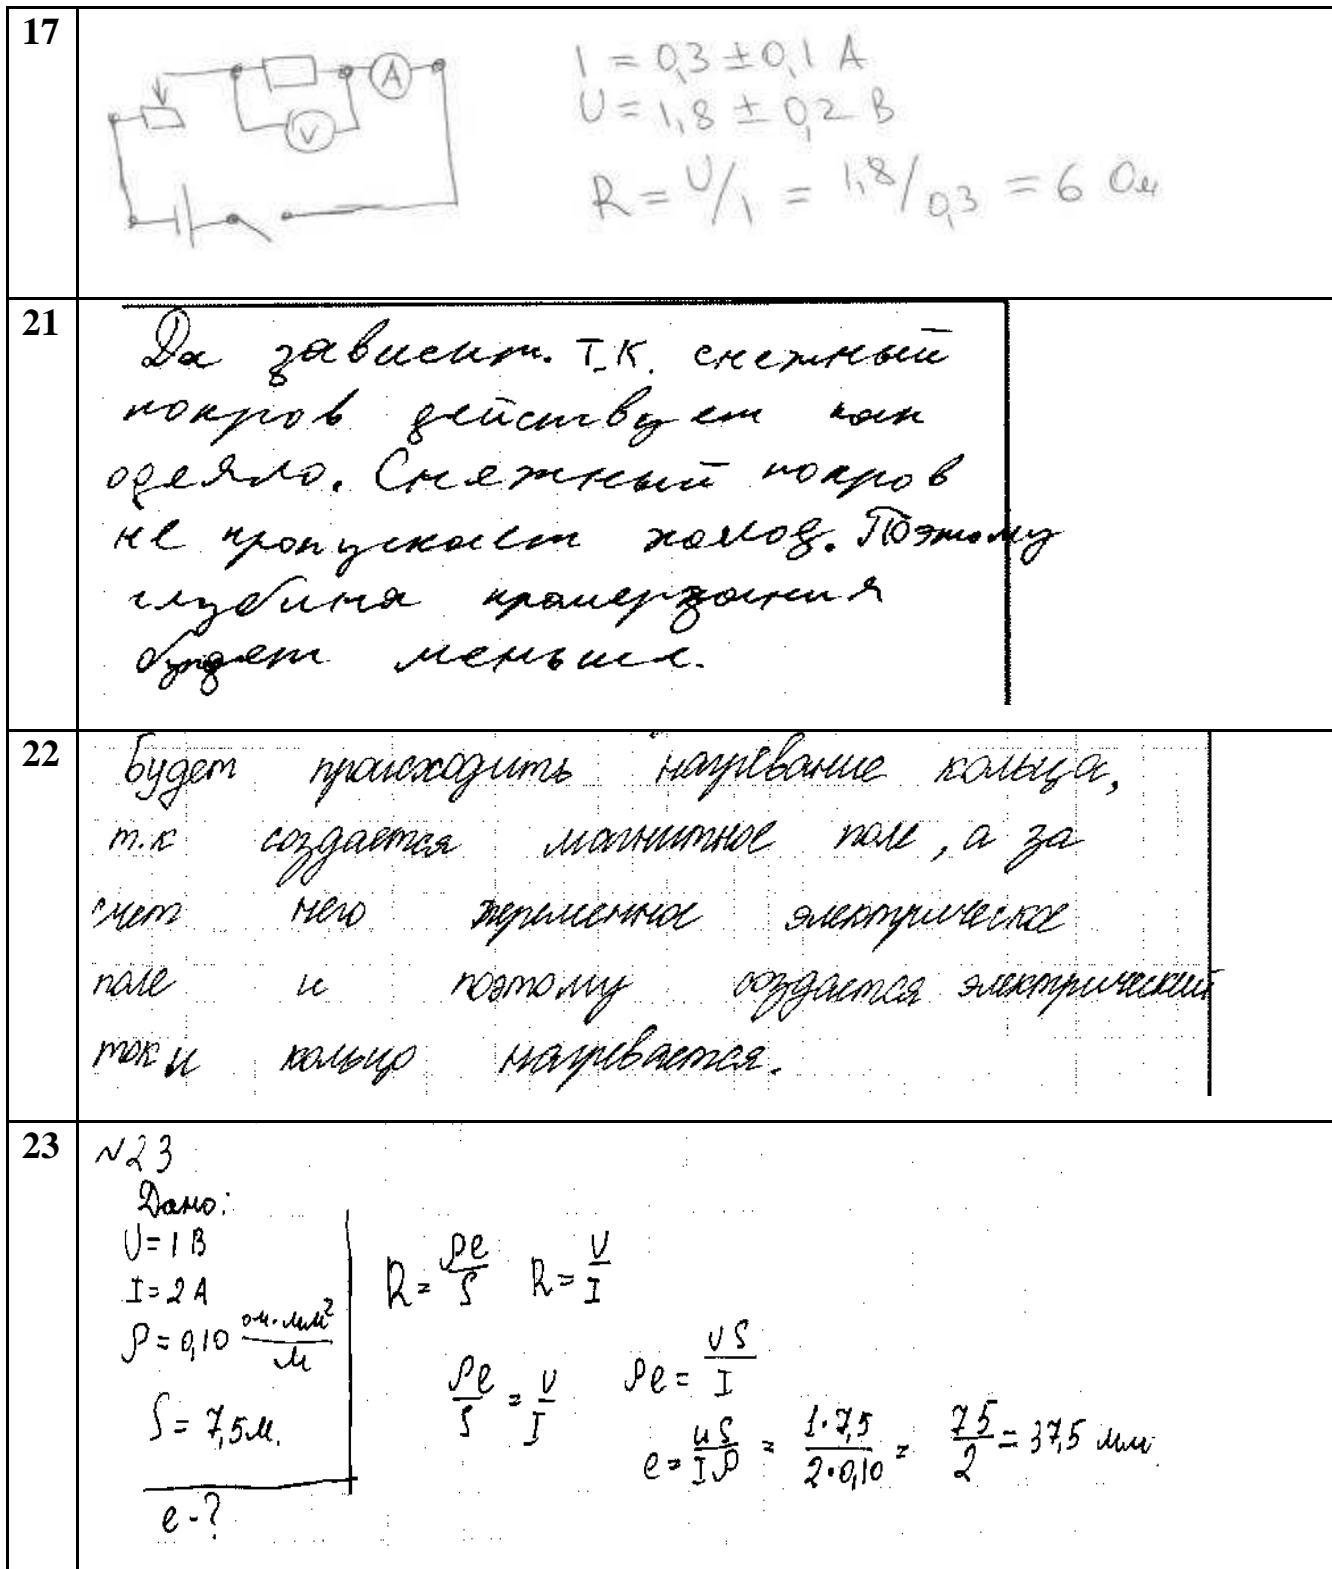 17
A
V
I = 0,3 ± 0,1 А
U = 1,8 ± 0,2 В
R = U/I = 1,8/0,3 = 6 Ом
21
Да зависит. Т.К. снежный
покров действует как
одеяло. Снежный покров
не пропускает холод. Поэтому
глубина промерзания
будет меньше.
22
Будет происходить нагревание кольца,
т.к создается магнитное поле, а за
счет него переменное электрическое
поле и поэтому создается электрический
ток и кольцо нагревается.
23
№23
Дано:
U = 1 В
I = 2 А
ρ = 0,10 ом·мм²/м
S = 7,5 м.
l - ?
R = ρl/S R = U/I
ρl/S = U/I ρl = US/I
l = US/Iρ = 1·7,5/2·0,10 = 75/2 = 37,5 мм.